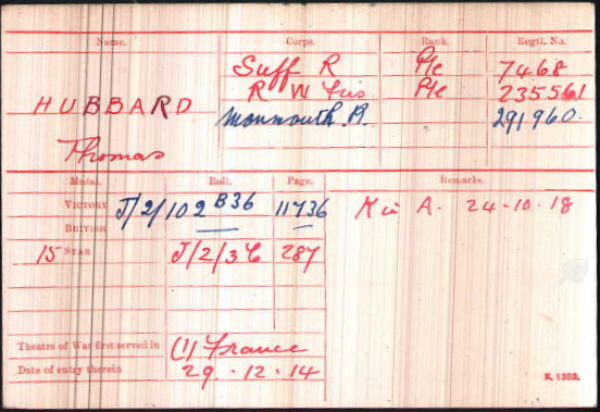 Name. Corps. Rank. Regtl. No.
Suff R Pte 7468
HUBBARD R W Fus Pte 235561
Monmouth. R. 291960.
Thomas
Medal. Roll. Page. Remarks.
VICTORY J/2/102 B36 11736 K in A. 24-10-18
BRITISH
15 STAR J/2/3C 287
Theatre of War first served in (1) France
Date of entry therein 29.12.14
K. 1380.